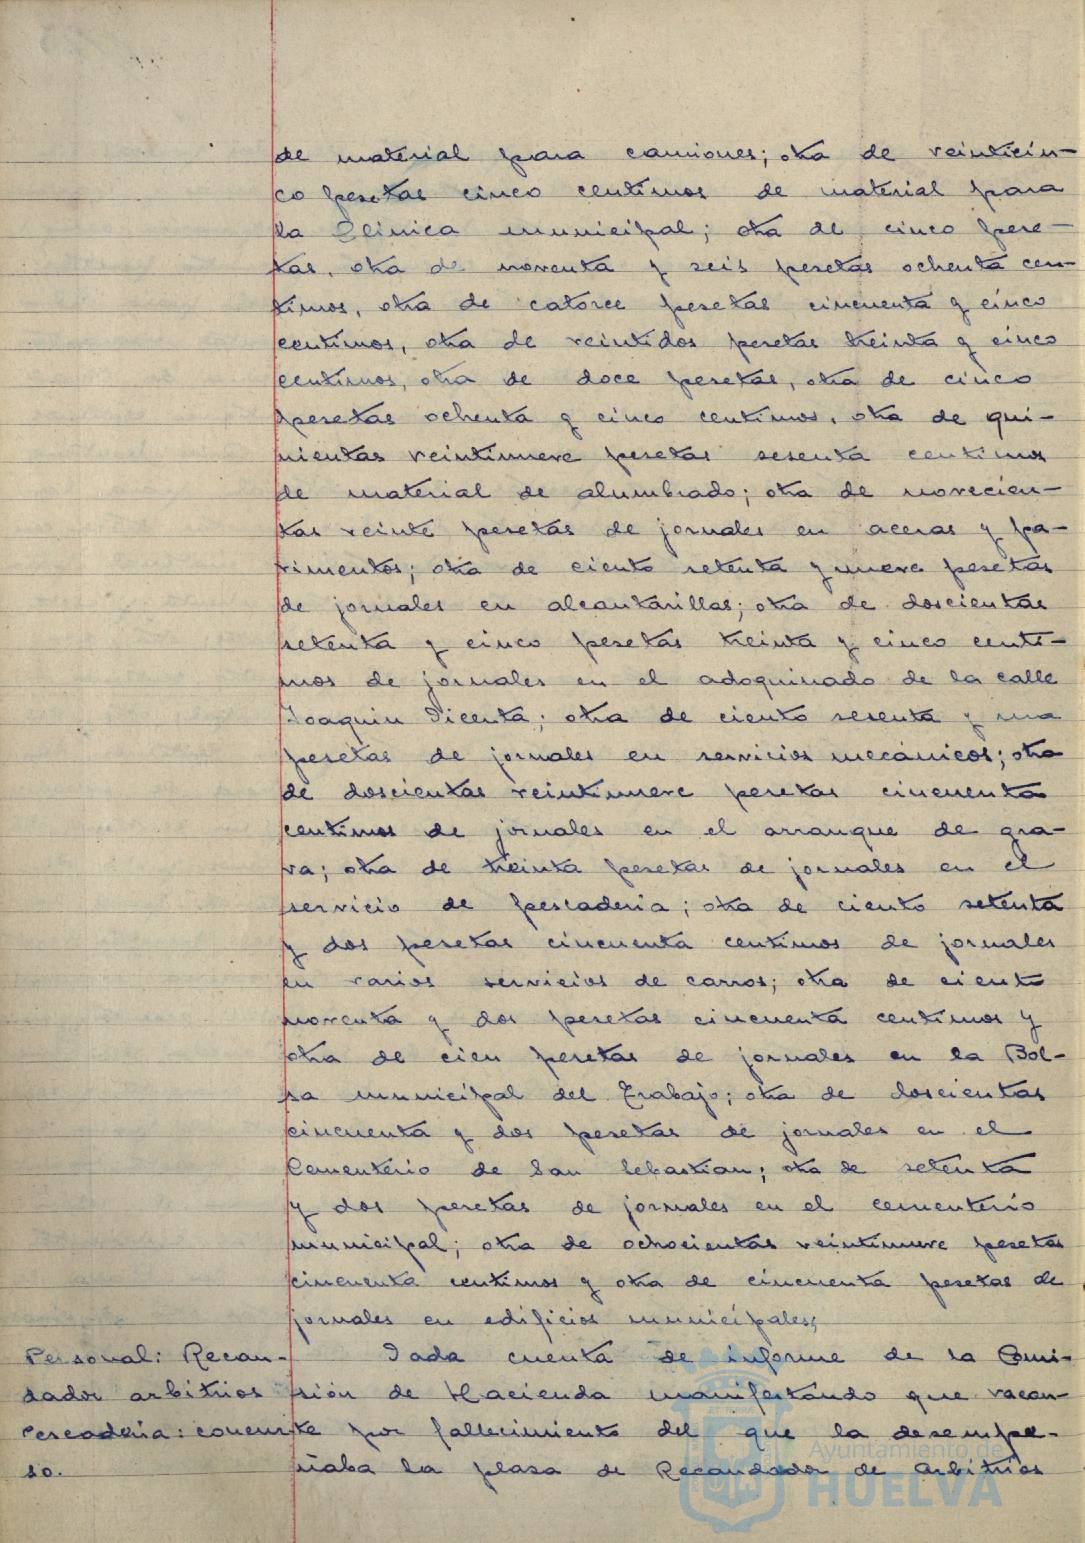 de material para camiones; otra de veinticin-
co pesetas cinco centimos de material para
la Clinica municipal; otra de cinco pese-
tas, otra de noventa y seis pesetas ochenta cen-
timos, otra de catorce pesetas cincuenta y cinco
centimos, otra de veintidos pesetas treinta y cinco
centimos, otra de doce pesetas, otra de cinco
pesetas ochenta y cinco centimos, otra de qui-
nientas veintinueve pesetas sesenta centimos
de material de alumbrado; otra de novecien-
tas veinte pesetas de jornales en aceras y pa-
vimentos; otra de ciento setenta y nueve pesetas
de jornales en alcantarillas; otra de doscientas
setenta y cinco pesetas treinta y cinco centi-
mos de jornales en el adoquinado de la calle
Joaquin Dicenta; otra de ciento sesenta y una
pesetas de jornales en servicios mecánicos; otra
de doscientas veintinueve pesetas cincuenta
centimos de jornales en el arranque de gra-
va; otra de treinta pesetas de jornales en el
servicio de pescaderia; otra de ciento setenta
y dos pesetas cincuenta centimos de jornales
en varios servicios de carros; otra de ciento
noventa y dos pesetas cincuenta centimos y
otra de cien pesetas de jornales en la Bol-
sa municipal del Trabajo; otra de doscientas
cincuenta y dos pesetas de jornales en el
Cementerio de San Sebastian; otra de setenta
y dos pesetas de jornales en el cementerio
municipal; otra de ochocientas veintinueve pesetas
cincuenta centimos y otra de cincuenta pesetas de
jornales en edificios municipales;
Personal: Recau-
dador arbitrios
Pescaderia: concur-
so.
Dada cuenta de informe de la Comi-
sión de Hacienda manifestando que vacan-
te por fallecimiento del que la desempe-
ñaba la plasa de Recaudador de Arbitrios
Ayuntamiento de
HUELVA